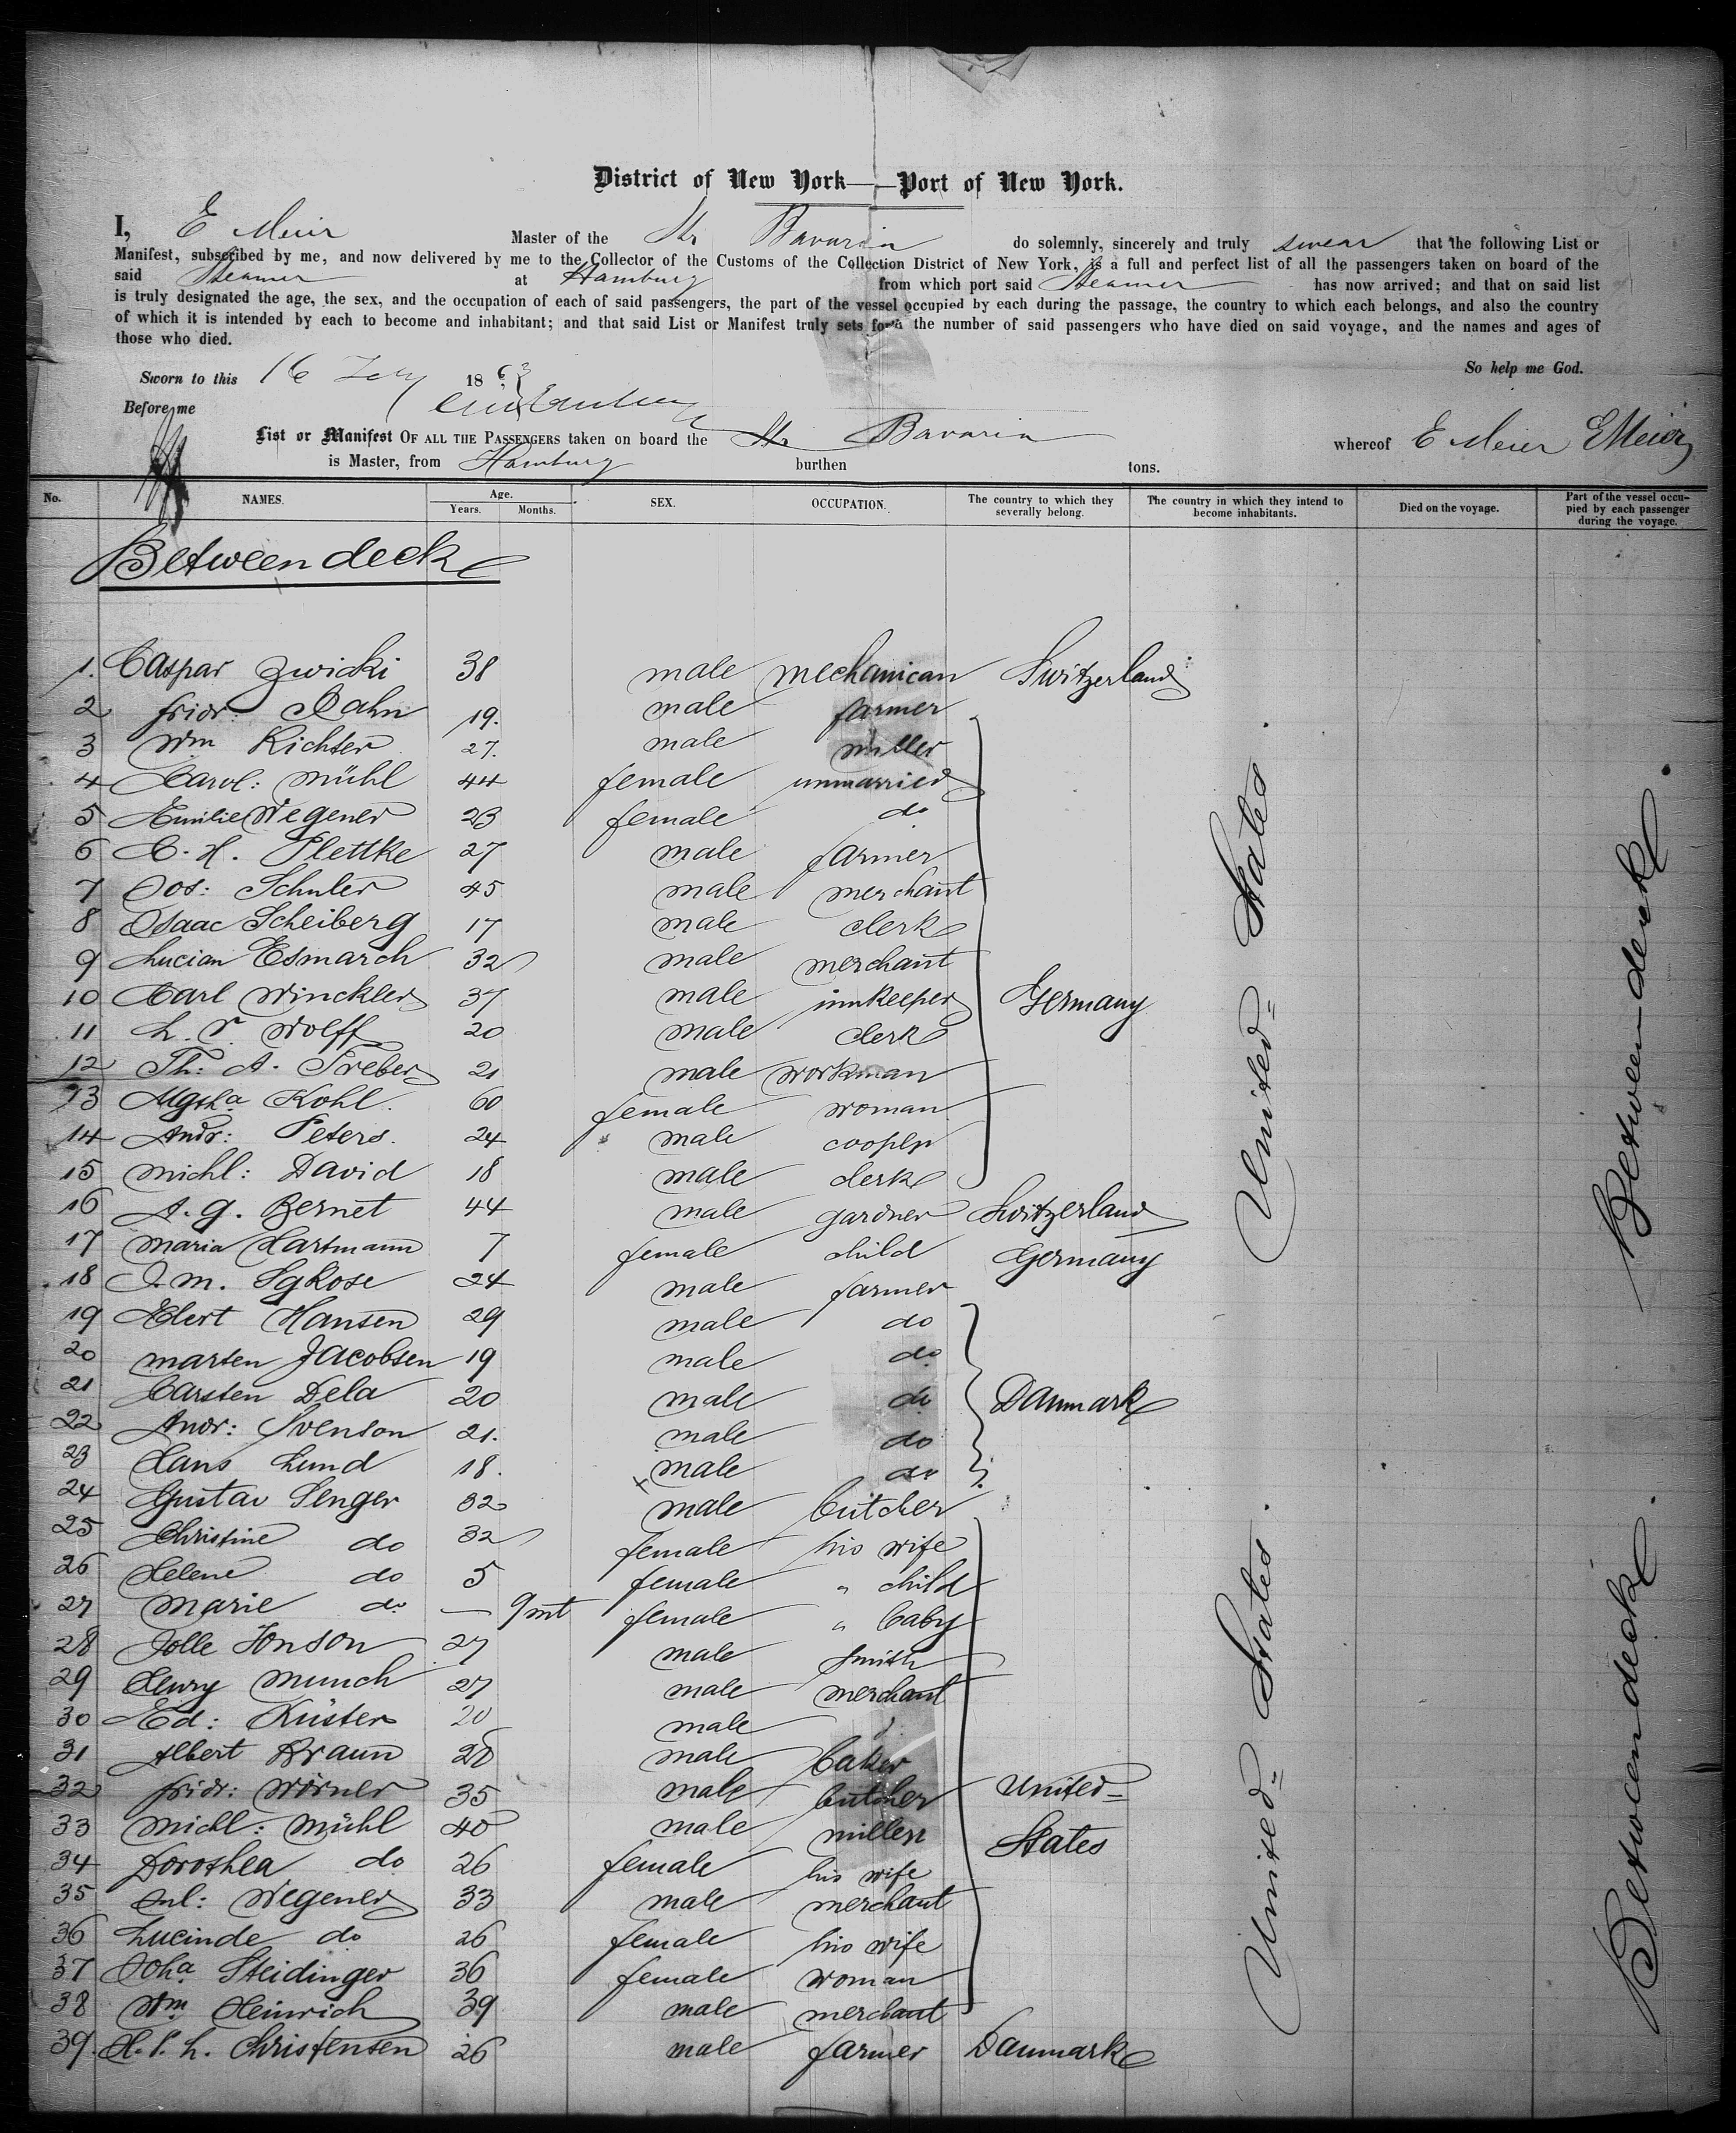 District of New York — Port of New York.
I, E Meier Master of the Str Bavaria do solemnly, sincerely and truly swear that the following List or
Manifest, subscribed by me, and now delivered by me to the Collector of the Customs of the Collection District of New York, is a full and perfect list of all the passengers taken on board of the
said Steamer at Hamburg from which port said Steamer has now arrived; and that on said list
is truly designated the age, the sex, and the occupation of each of said passengers, the part of the vessel occupied by each during the passage, the country to which each belongs, and also the country
of which it is intended by each to become and inhabitant; and that said List or Manifest truly sets forth the number of said passengers who have died on said voyage, and the names and ages of
those who died.
So help me God.
Sworn to this 16 1863
Before me
List or Manifest OF ALL THE PASSENGERS taken on board the Str Bavaria whereof E Meier E Meier
is Master, from Hamburg burthen tons.
No. NAMES. Age. Years. Months. SEX. OCCUPATION. The country to which they severally belong. The country in which they intend to become inhabitants. Died on the voyage. Part of the vessel occupied by each passenger during the voyage.
Between deck
1. Caspar Zwicki 38 male mechanican Switzerland
2 fridr: Hahn 19. male farmer
3 Wm Richter 27. male miller
4 Carol: Mühl 44 female unmarried
5 Emilie Wegener 23 female do
6 C. H. Plettke 27 male farmer
7 Jos: Schuler 45 male merchant
8 Isaac Scheiberg 17 male clerk
9 Lucian Esmarch 32 male merchant
10 Carl Winckler 37 male innkeeper Germany
11 L. V. Wolff 20 male clerk
12 Th: A. Treber 21 male workman
13 Mgtha Kohl. 60 female woman
14 Andr: Peters. 24 male cooper
15 Michl: David 18 male clerk
16 A. G. Bernet 44 male gardner Switzerland
17 Maria Hartmann 7 female child Germany
18 J. M. Sgkose 24 male farmer
19 Elert Hansen 29 male do
20 Marten Jacobsen 19 male do
21 Carsten Dela 20 male do Danmark
22 Andr: Svenson 21. male do
23 Hans Lund 18. male do
24 Gustav Senger 32 male butcher
25 Christine do 32 female his wife
26 Helene do 5 female " child
27 Marie do — 9 mt female " baby
28 Jolle Jonson 27 male smith
29 Henry Munch 27 male merchant
30 Ed: Küster 20 male
31 Albert Braun 28 male baker
32 fridr: Wörner 35 male butcher United=
33 Michl: Mühl 40 male miller States
34 Dorothea do 26 female his wife
35 Jul: Wegener 33 male merchant
36 Lucinde do 26 female his wife
37 Joha Steidinger 36 female woman
38 Wm Heinrich 39 male merchant
39. H. P. L. Christensen 26 male farmer Danmark
United= States.
United= States.
Between deck
Between deck.